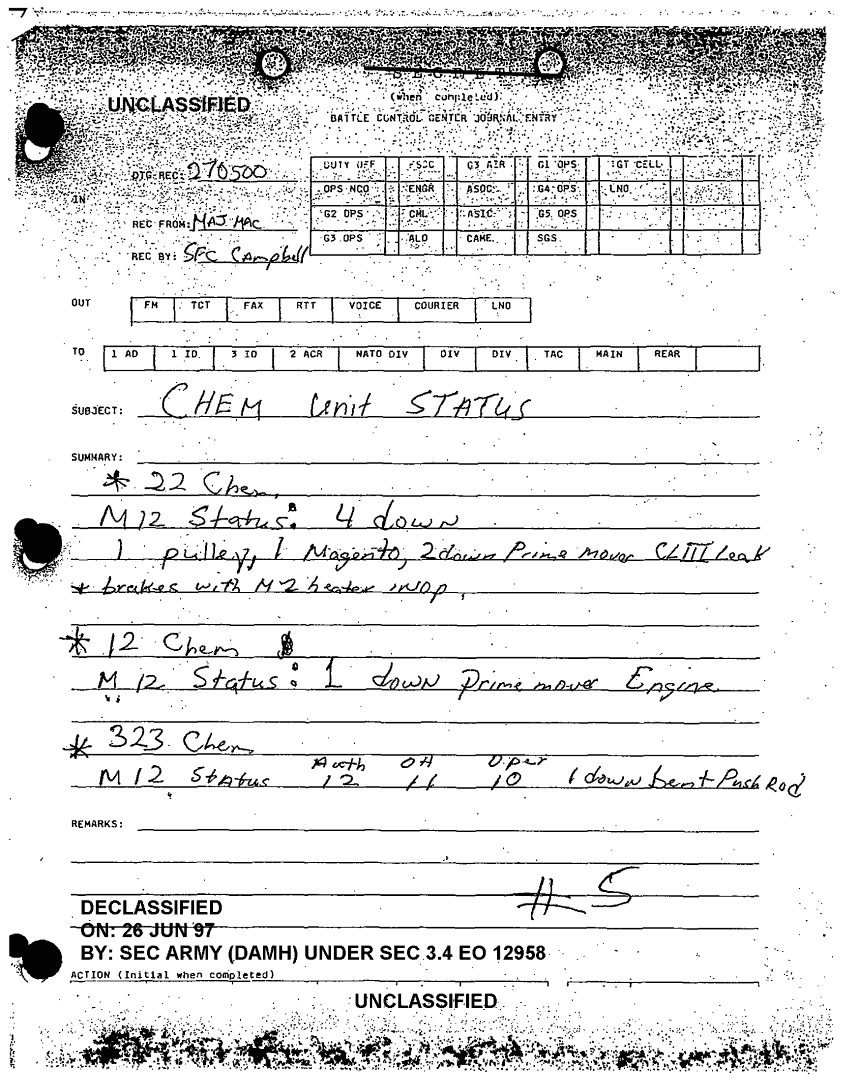 SECRET
(when completed)
UNCLASSIFIED
BATTLE CONTROL CENTER JOURNAL ENTRY
DTG REC: 270500
IN
REC FROM: MAJ MAC
REC BY: SFC Campbell
DUTY OFF FSCC G3 AIR G1 OPS TGT CELL
OPS NCO ENGR ASOC G4 OPS LNO
G2 OPS CML ASIC G5 OPS
G3 OPS ALO CAME SGS
OUT FM TCT FAX RTT VOICE COURIER LNO
TO 1 AD 1 ID 3 ID 2 ACR NATO DIV DIV DIV TAC MAIN REAR
SUBJECT: CHEM Unit STATUS
SUMMARY:
* 22 Chem
M12 Status: 4 down
1 pulley, 1 Magento, 2 down Prime mover CLIII leak
* brakes with M2 heater INOP,
* 12 Chem
M 12 Status: 1 down Prime mover Engine
* 323 Chem
Auth OH Oper
M12 Status 12 11 10 1 down bent Push Rod
REMARKS:
# 5
DECLASSIFIED
ON: 26 JUN 97
BY: SEC ARMY (DAMH) UNDER SEC 3.4 EO 12958
ACTION (Initial when completed)
UNCLASSIFIED